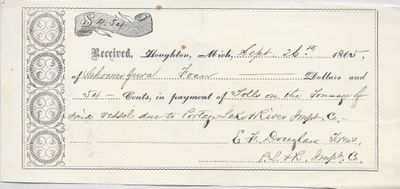 $4.54
Received, Houghton, Mich, Sept. 26th 1865.
of Schooner Four Dollars and
54 Cents, in payment of Tolls on the Tonnage of
said vessel due to Portage Lake & River Impt. Co.
E. H. Douglass Treas
P.L. & R. Impt. Co.